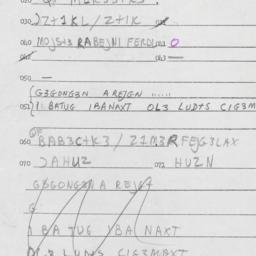 030 JZ+1KL / Z+1K
040 MOJS+3 RABEJNI FERDL 041 O
042 043 —
050 —
G3GONG3N A REJGN ......
051 I BATUG IBANAXT OL3 LUD+S CIG3M
060 BAB3C+K3 / Z1M3R FEJG3LAX
070 JAHUZ 072 HUZN
G3GONG3N A REJG+
G
I BA TUG IBA NAXT
OL3 LUD+S CIG3MBAXT